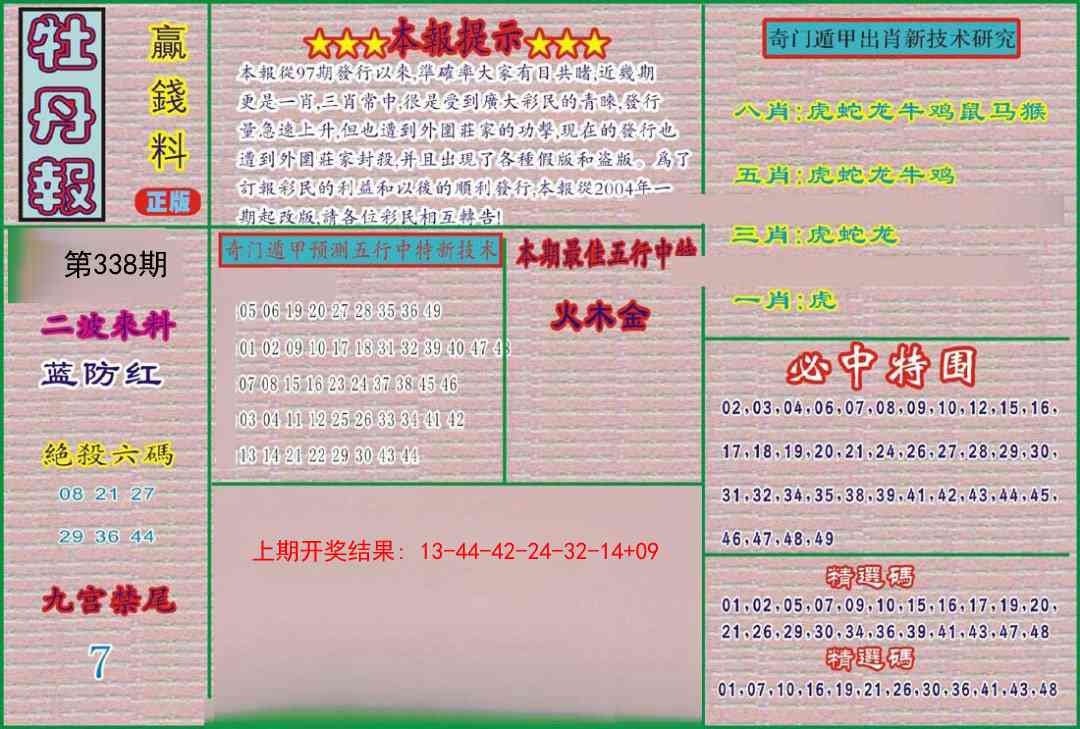 牡丹報
贏錢料
正版
★★★本報提示★★★
本報從97期發行以來,準確率大家有目共睹,近幾期
更是一肖,三肖常中,很是受到廣大彩民的青睞,發行
量急速上升,但也遭到外圍莊家的功擊,現在的發行也
遭到外圍莊家封殺,并且出現了各種假版和盗版。爲了
訂報彩民的利益和以後的順利發行,本報從2004年一
期起改版,請各位彩民相互轉告!
奇门遁甲出肖新技术研究
八肖:虎蛇龙牛鸡鼠马猴
五肖:虎蛇龙牛鸡
三肖:虎蛇龙
一肖:虎
第338期
二波來料
蓝防红
絕殺六碼
08 21 27
29 36 44
九宫禁尾
7
奇门遁甲预测五行中特新技术
05 06 19 20 27 28 35 36 49
01 02 09 10 17 18 31 32 39 40 47 48
07 08 15 16 23 24 37 38 45 46
03 04 11 12 25 26 33 34 41 42
13 14 21 22 29 30 43 44
本期最佳五行中特
火木金
上期开奖结果: 13-44-42-24-32-14+09
必中特围
02,03,04,06,07,08,09,10,12,15,16,
17,18,19,20,21,24,26,27,28,29,30,
31,32,34,35,38,39,41,42,43,44,45,
46,47,48,49
精選碼
01,02,05,07,09,10,15,16,17,19,20,
21,26,29,30,34,36,39,41,43,47,48
精選碼
01,07,10,16,19,21,26,30,36,41,43,48